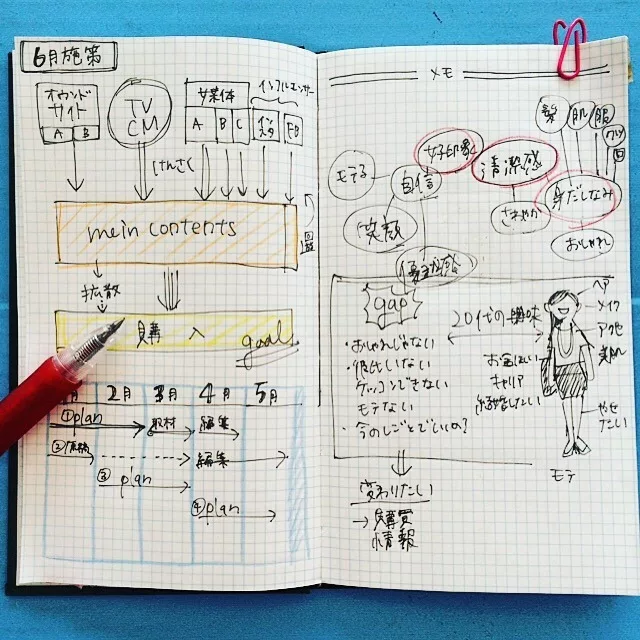 6月施策
オウンド
サイト
A B
TV
CM
媒体
A B C
インフルエンサー
インスタ
FB
けんさく
mein contents
回遊
拡散
購 入
goal
月 2月 3月 4月 5月
①plan
取材
編集
②
編集
③
plan
④plan
メモ
髪
肌
服
モテる
自信
女子印象
清潔感
身だしなみ
笑顔
さわやか
おしゃれ
優越感
gap
20代の
・おしゃれじゃない
・彼氏いない
・ケッコンできない
・モテない
・今のしごとでいいの?
ヘア
メイク
アクセ
美肌
お金ほしい
キャリア
結婚したい
やせ
たい
モテ
変わりたい
→ 購買
情報